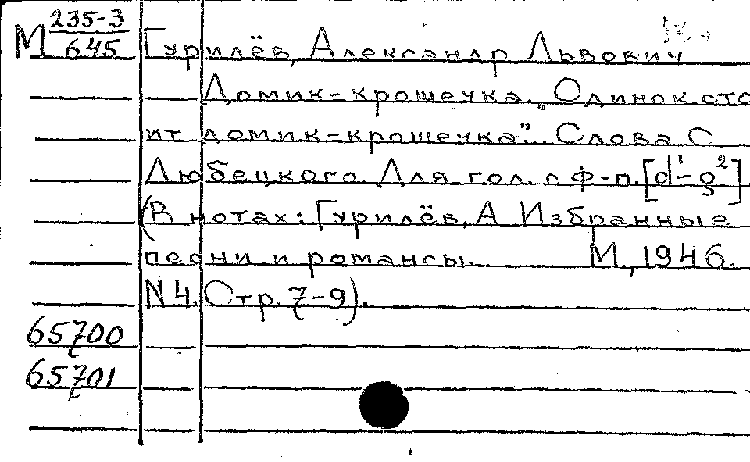 М 235-3/645 Гурилёв, Александр Львович
Домик-крошечка. „Одинок сто
ит домик-крошечка”... Слова С
Любецкого. Для гол. с ф-п. [d¹-g²]
(В нотах: Гурилёв, А Избранные
песни и романсы. М, 1946.
N 4. Стр. 7-9).
65700
65701